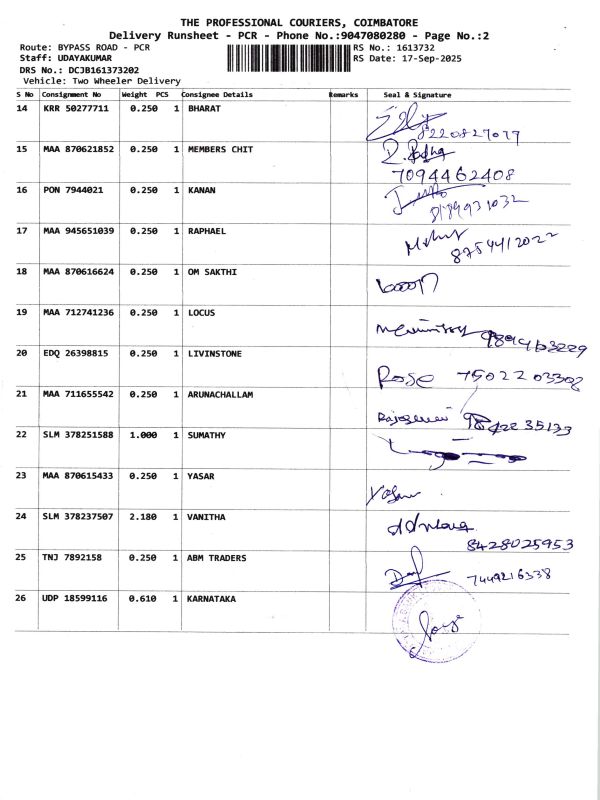 THE PROFESSIONAL COURIERS, COIMBATORE
Delivery Runsheet - PCR - Phone No.:9047080280 - Page No.:2
Route: BYPASS ROAD - PCR RS No.: 1613732
Staff: UDAYAKUMAR RS Date: 17-Sep-2025
DRS No.: DCJB161373202
Vehicle: Two Wheeler Delivery
S No Consignment No Weight PCS Consignee Details Remarks Seal & Signature
14 KRR 50277711 0.250 1 BHARAT
8220827077
15 MAA 870621852 0.250 1 MEMBERS CHIT
7094462408
16 PON 7944021 0.250 1 KANAN
17 MAA 945651039 0.250 1 RAPHAEL
8754412022
18 MAA 870616624 0.250 1 OM SAKTHI
19 MAA 712741236 0.250 1 LOCUS
9894463229
20 EDQ 26398815 0.250 1 LIVINSTONE
Rose 75022 03302
21 MAA 711655542 0.250 1 ARUNACHALLAM
22 SLM 378251588 1.000 1 SUMATHY
23 MAA 870615433 0.250 1 YASAR
24 SLM 378237507 2.180 1 VANITHA
8428025953
25 TNJ 7892158 0.250 1 ABM TRADERS
7449216338
26 UDP 18599116 0.610 1 KARNATAKA